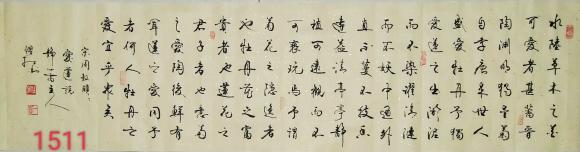 水陸草木之花
可愛者甚蕃晉
陶淵明獨愛菊
自李唐來世人
盛愛牡丹予獨
愛蓮之出淤泥
而不染濯清漣
而不妖中通外
直不蔓不枝香
遠益清亭亭靜
植可遠觀而不
可褻玩焉予謂
菊花之隱逸者
也牡丹花之富
貴者也蓮花之
君子者也噫菊
之愛陶後鮮有
聞蓮之愛同予
者何人牡丹之
愛宜乎眾矣
宋周敦頤
愛蓮說
主人
1511